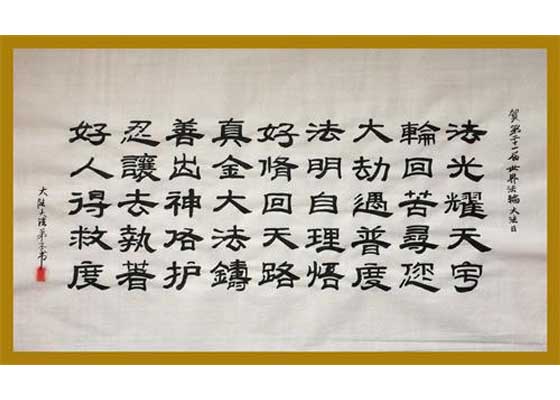 賀第二十一届世界法輪大法日
法光耀天宇
輪回苦尋您
大劫遇普度
法明自理悟
好脩回天路
真金大法鑄
善出神佑护
忍讓去執著
好人得救度
大陸大法弟子书